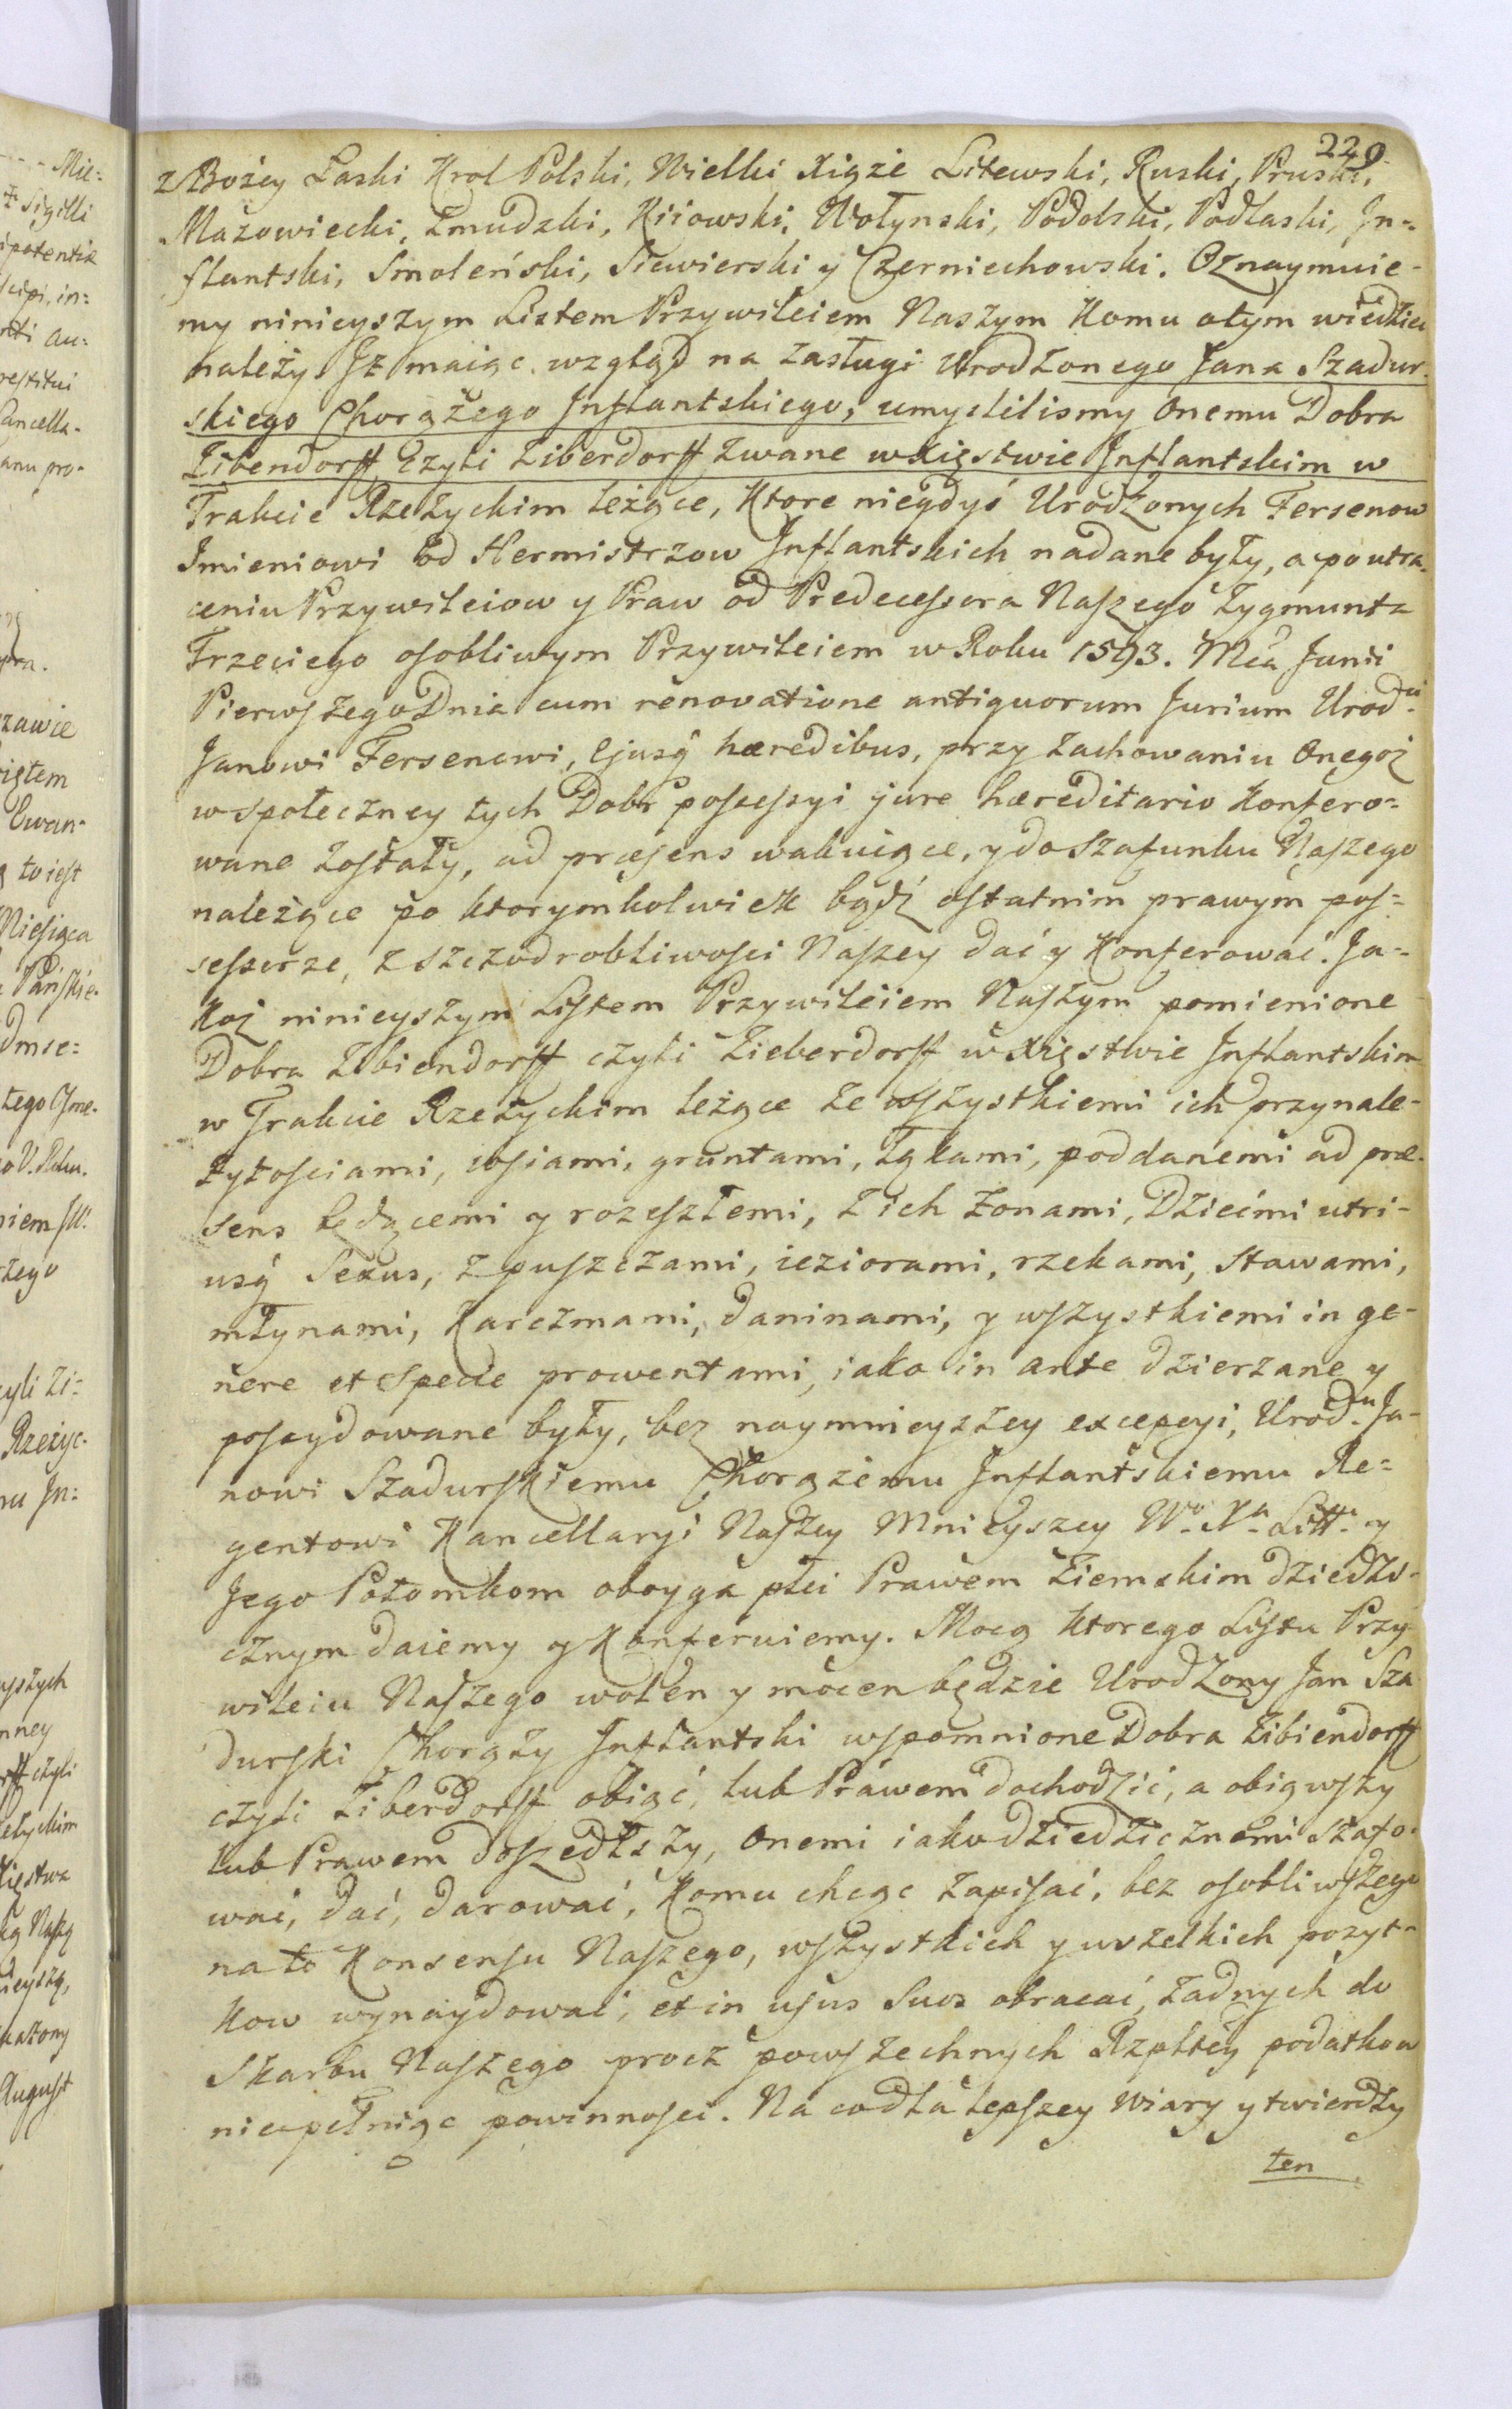 229
z Bożey Łaski Krol Polski, Wielki Xiąże Litewski, Ruski, Pruski,
Mazowiecki, Żmudzki, Kiiowski, Wołynski, Podolski, Podlaski, In-
flantski, Smoleński, Siewierski y Czerniechowski. Oznaymuie-
my ninieyszym Listem Przywileiem Naszym Komu otym wiedziec
należy Iż maiąc wzgląd na zasługi Urodzonego Jana Szadur-
skiego Chorążego Inflantskiego, umyslilismy Onemu Dobra
Zibendorff czyli Ziberdorff zwane w Xięstwie Inflantskim w
Trakcie Rzeżyckim leżące, Ktore niegdyś Urodzonych Fersenow
Imieniowi od Hermistrzow Inflantskich nadane były, a po utra-
ceniu Przywileiow y Praw od Predecessora Naszego Zygmunta
Trzeciego osobliwym Przywileiem w Roku 1593. Mca Junii
Pierwszego Dnia cum renovatione antiquorum Jurium Urod:
Janowi Fersenowi, Ejusq hæredibus, przy zachowaniu Onegoż
w społeczney tych Dobr possessyi jure hæreditario Konfero-
wane zostały, ad præsens wakuiące, y do szafunku Naszego
należące po ktorymkolwiek bądź ostatnim prawym pos-
sesserze, z szczodrobliwosci Naszey dać y Konferować. Ja-
koż ninieyszym Listem Przywileiiem Naszym pomienione
Dobra Zibiendorff czyli Zieberdorff w Xięstwie Inflantskim
w Trakcie Rzeżyckim leżące ze wszystkiemi ich przynale-
żytosciami, wsiami, gruntami, łąkami, poddanemi ad præ-
sens będącemi y rozeszłemi, z ich żonami, Dziećmi utri-
usq Sexus, z puszczami, ieziorami, rzekami, stawami,
młynami, Karczmami, daninami, y wszystkiemi in ge-
nere et specie prowentami, iako in ante dzierzane y
possydowane były, bez naymnieyszey excepcyi, Urod: Ja-
nowi Szadurskiemu Chorążemu Inflantskiemu Re-
gentowi Kancellaryi Naszey Mnieyszey Wo Xa Litt: y
Jego Potomkom oboyga płci Prawem Ziemskim dziedzi-
cznym daiemy y Konferuiemy. Mocą Ktorego Listu Przy
wileiu Naszego wolen y mocen będzie Urodzony Jan Sza
durski Chorąży Inflantski wspomnione Dobra Zibiendorff
czyli Ziberdorff obiąć, lub Prawem dochodzić, a obiąwszy
lub Prawem doszedłszy, Onemi iako dziedzicznemi szafo-
wać, dać, darować, Komu chcąc zapisać, bez osobliwszego
na to Konsensu Naszego, wszystkich y wszelkich pozyt-
kow wynaydować, et in usus suos obracać, żadnych do
Skarbu Naszego procz powszechnych Rzpltey podatkow
niepełniąc powinnosci. Na co dla lepszey wiary y twierdzy
ten